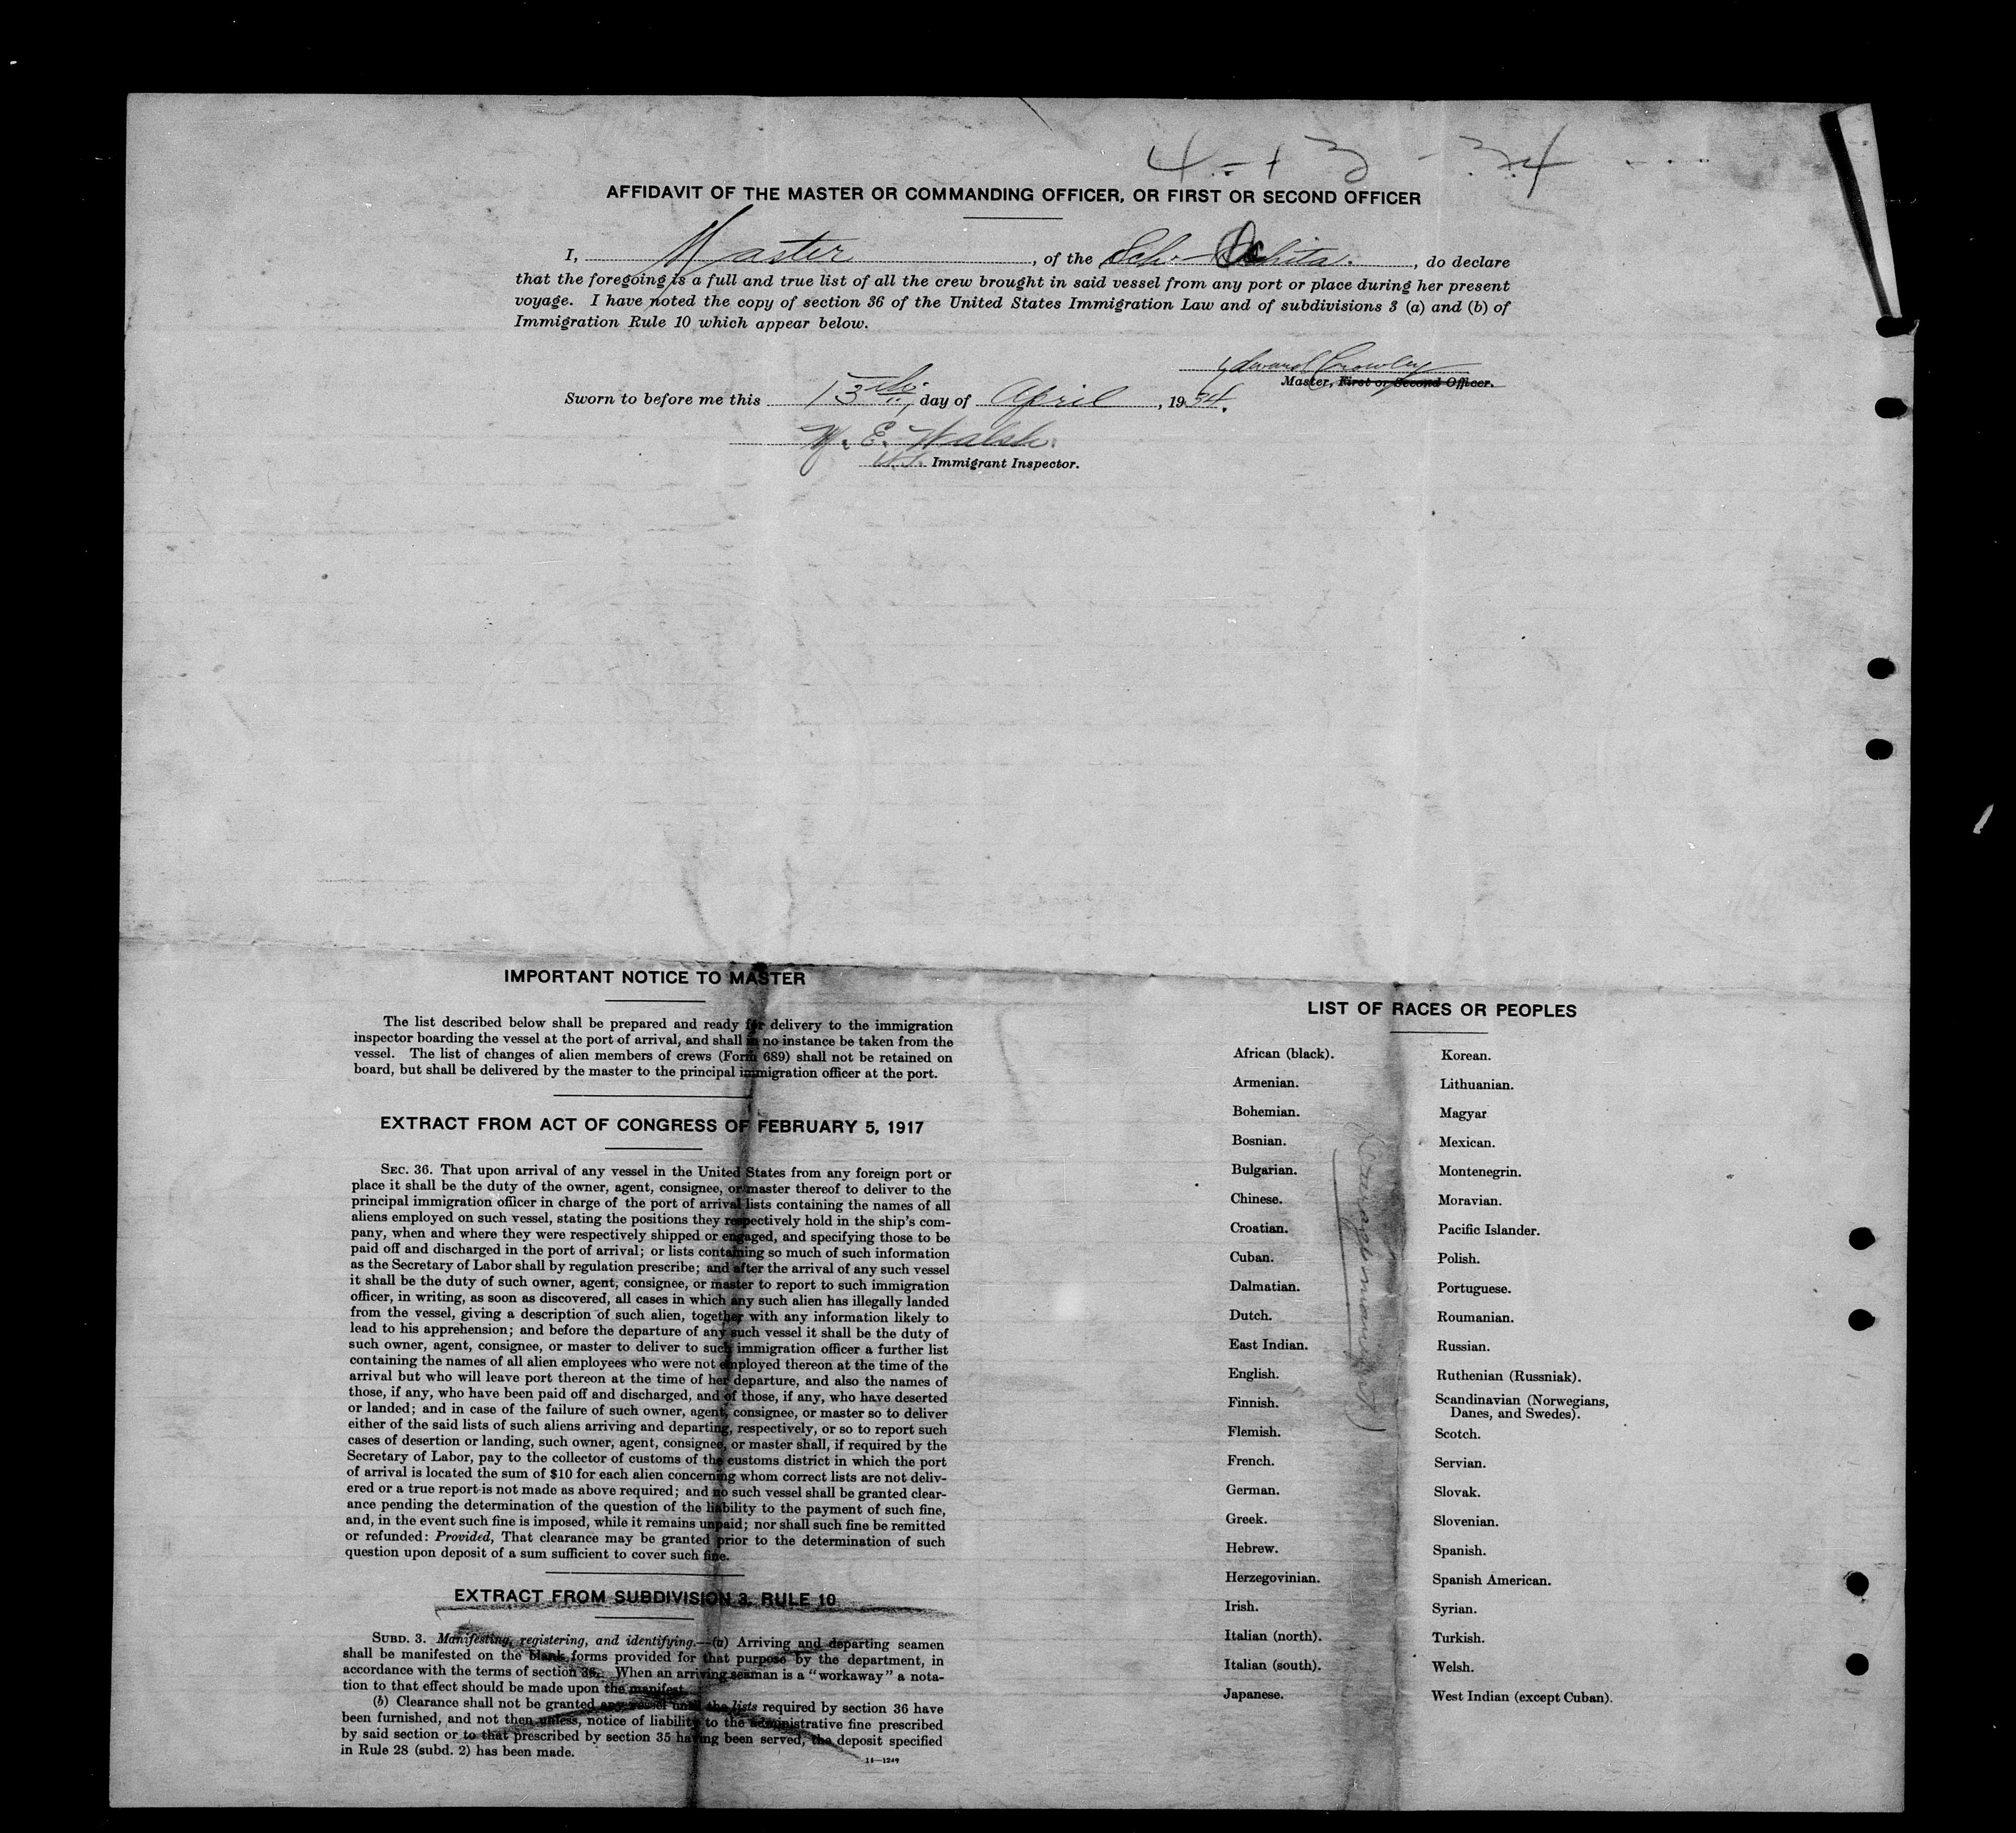 4-13-34
AFFIDAVIT OF THE MASTER OR COMMANDING OFFICER, OR FIRST OR SECOND OFFICER
I, Master, of the Sch. Ochita., do declare
that the foregoing is a full and true list of all the crew brought in said vessel from any port or place during her present
voyage. I have noted the copy of section 36 of the United States Immigration Law and of subdivisions 3 (a) and (b) of
Immigration Rule 10 which appear below.
Edward Crowley
Master, First or Second Officer.
Sworn to before me this 13th day of April, 1934.
M. E. Walsh.
U.S. Immigrant Inspector.
IMPORTANT NOTICE TO MASTER
The list described below shall be prepared and ready for delivery to the immigration
inspector boarding the vessel at the port of arrival, and shall in no instance be taken from the
vessel. The list of changes of alien members of crews (Form 689) shall not be retained on
board, but shall be delivered by the master to the principal immigration officer at the port.
EXTRACT FROM ACT OF CONGRESS OF FEBRUARY 5, 1917
SEC. 36. That upon arrival of any vessel in the United States from any foreign port or
place it shall be the duty of the owner, agent, consignee, or master thereof to deliver to the
principal immigration officer in charge of the port of arrival lists containing the names of all
aliens employed on such vessel, stating the positions they respectively hold in the ship's com-
pany, when and where they were respectively shipped or engaged, and specifying those to be
paid off and discharged in the port of arrival; or lists containing so much of such information
as the Secretary of Labor shall by regulation prescribe; and after the arrival of any such vessel
it shall be the duty of such owner, agent, consignee, or master to report to such immigration
officer, in writing, as soon as discovered, all cases in which any such alien has illegally landed
from the vessel, giving a description of such alien, together with any information likely to
lead to his apprehension; and before the departure of any such vessel it shall be the duty of
such owner, agent, consignee, or master to deliver to such immigration officer a further list
containing the names of all alien employees who were not employed thereon at the time of the
arrival but who will leave port thereon at the time of her departure, and also the names of
those, if any, who have been paid off and discharged, and of those, if any, who have deserted
or landed; and in case of the failure of such owner, agent, consignee, or master so to deliver
either of the said lists of such aliens arriving and departing, respectively, or so to report such
cases of desertion or landing, such owner, agent, consignee, or master shall, if required by the
Secretary of Labor, pay to the collector of customs of the customs district in which the port
of arrival is located the sum of $10 for each alien concerning whom correct lists are not deliv-
ered or a true report is not made as above required; and no such vessel shall be granted clear-
ance pending the determination of the question of the liability to the payment of such fine,
and, in the event such fine is imposed, while it remains unpaid; nor shall such fine be remitted
or refunded: Provided, That clearance may be granted prior to the determination of such
question upon deposit of a sum sufficient to cover such fine.
EXTRACT FROM SUBDIVISION 3, RULE 10
SUBD. 3. Manifesting, registering, and identifying.—(a) Arriving and departing seamen
shall be manifested on the blank forms provided for that purpose by the department, in
accordance with the terms of section 36. When an arriving seaman is a "workaway" a nota-
tion to that effect should be made upon the manifest.
(b) Clearance shall not be granted any vessel until the lists required by section 36 have
been furnished, and not then unless, notice of liability to the administrative fine prescribed
by said section or to that prescribed by section 35 having been served, the deposit specified
in Rule 28 (subd. 2) has been made.
14—1249
LIST OF RACES OR PEOPLES
African (black).
Armenian.
Bohemian.
Bosnian.
Bulgarian.
Chinese.
Croatian.
Cuban.
Dalmatian.
Dutch.
East Indian.
English.
Finnish.
Flemish.
French.
German.
Greek.
Hebrew.
Herzegovinian.
Irish.
Italian (north).
Italian (south).
Japanese.
Korean.
Lithuanian.
Magyar
Mexican.
Montenegrin.
Moravian.
Pacific Islander.
Polish.
Portuguese.
Roumanian.
Russian.
Ruthenian (Russniak).
Scandinavian (Norwegians,
Danes, and Swedes).
Scotch.
Servian.
Slovak.
Slovenian.
Spanish.
Spanish American.
Syrian.
Turkish.
Welsh.
West Indian (except Cuban).